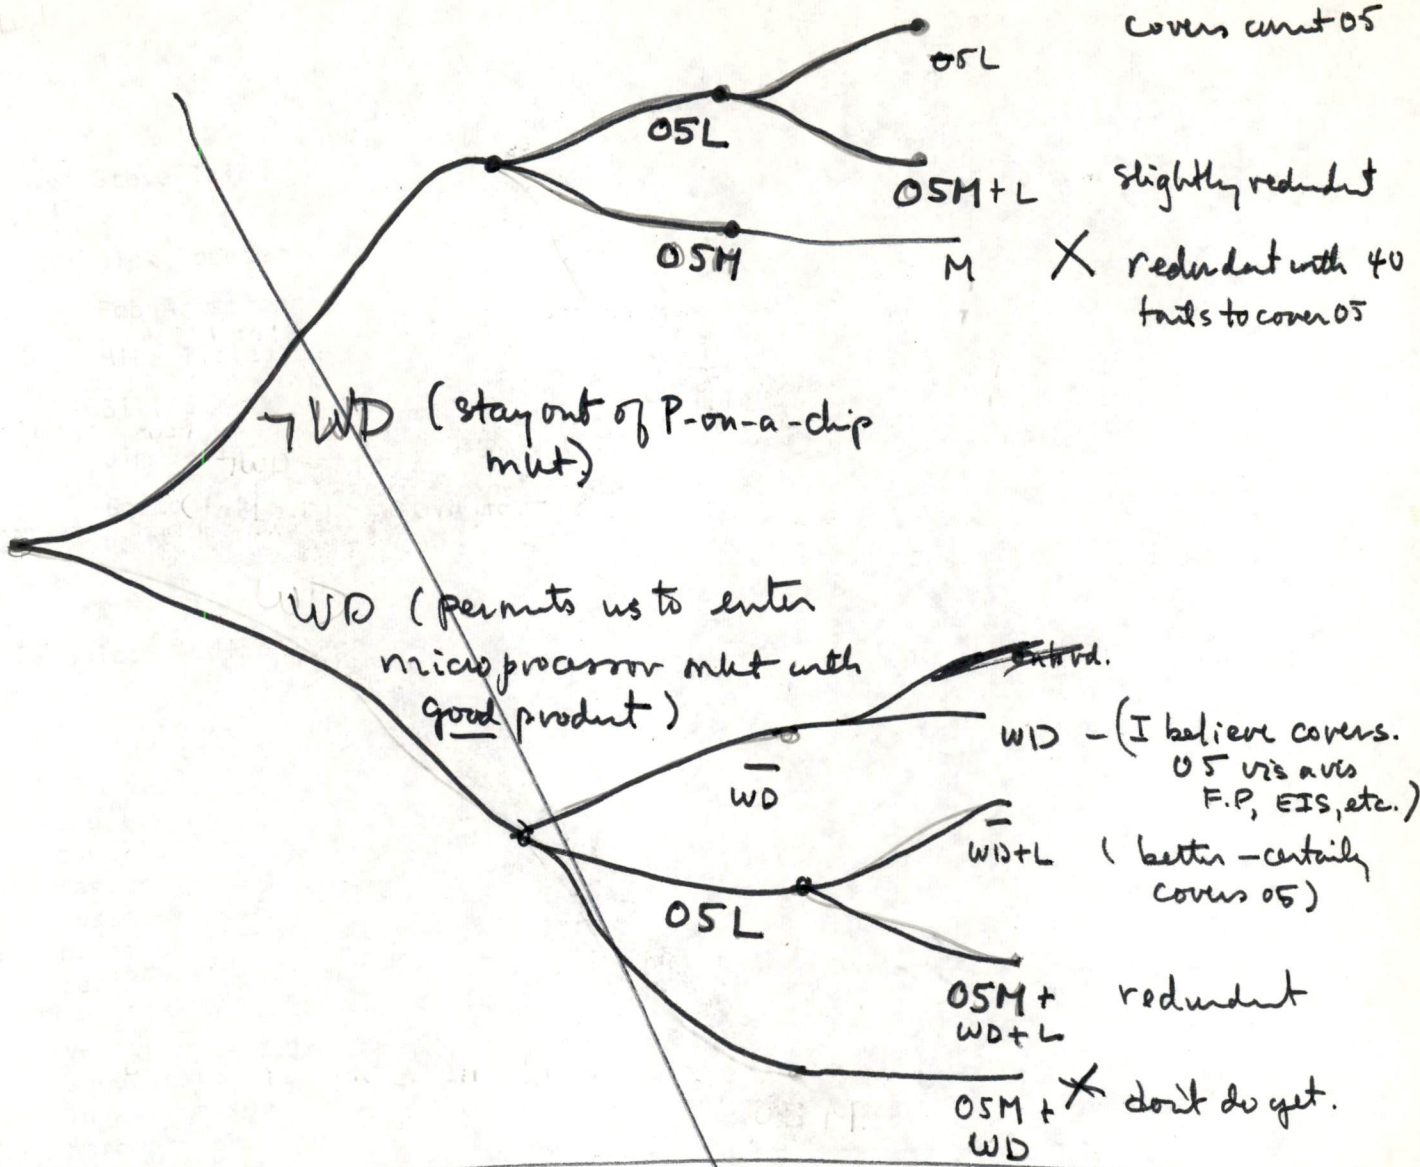 covers current 05
05L
05L
05M+L slightly redundant
05M
M X redundant with 40
fails to cover 05
¬ WD (stay out of P-on-a-chip
mkt.)
WD (permits us to enter
microprocessor mkt with
good product)
WD
WD - (I believe covers.
05 vis a vis
F.P, EIS, etc.)
WD+L (better - certainly
covers 05)
05L
05M + redundant
WD+L
05M + X don't do yet.
WD